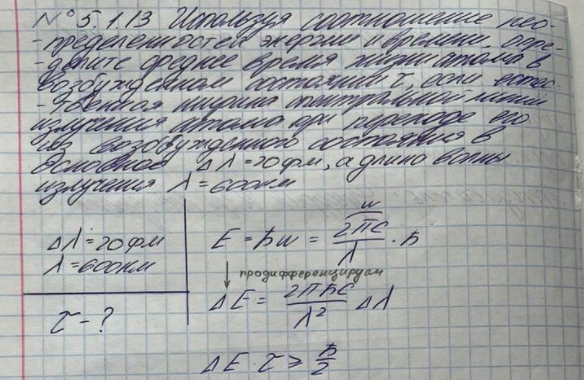 N° 5.1.13 Используя соотношение нео-
-пределенностей энергии и времени, опре-
-делите среднее время жизни атома в
возбужденном состоянии τ, если естес-
-твенная ширина спектральной линии
излучения атома при переходе его
из возбужденного состояния в
основное Δλ = 20 фм, а длина волны
излучения λ = 600 нм
Δλ = 20 фм
λ = 600 нм
τ - ?
ω
E = ħω = 2πc/λ · ħ
↓ продифференцируем
ΔE = 2πħc/λ² Δλ
ΔE · τ ≥ ħ/2